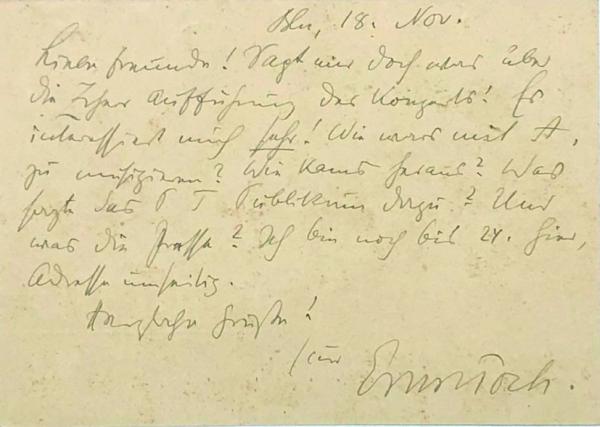 Bln, 18. Nov.
Liebe Freunde! Sagt mir doch was über
die Aufführung des Konzerts! Es
interessiert mich sehr! Wie wars mit A.
zu musizieren? Wie kams heraus? Was
sagte das P T Publikum dazu? Und
was die Presse? Ich bin noch bis 24. hier,
Adresse umseitig.
Herzliche Grüße!
Ernst Toch.